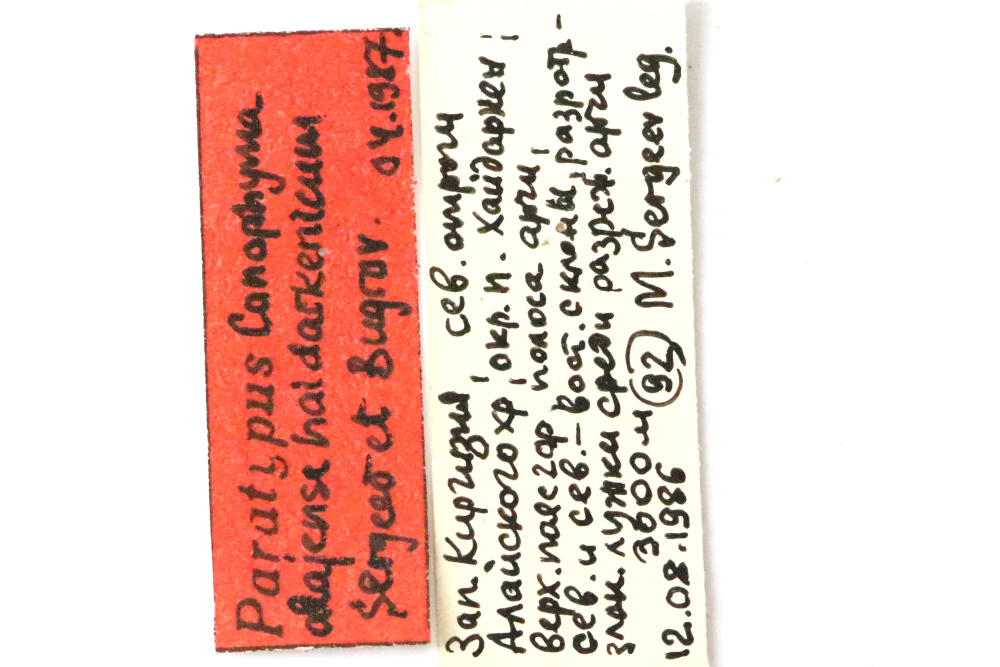 Paratypus Conophyma
alajense haidarkenicum
Sergeev et Bugrov. 04.1987.
Зап. Киргизия, сев. отроги
Алайского хр, окр. п. Хайдаркен;
верх. полоса арчи,
сев. и сев.-вост. склоны, разнотр-
злак. лужки среди разреж. арчи
3600 м (92) M. Sergeev leg.
12.08.1986